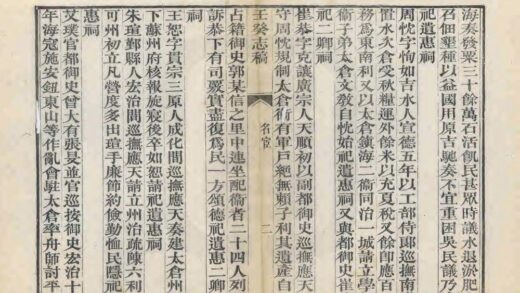 海奏發粟三十餘萬石活飢民甚眾時議水退淤肥
召佃墾種以益國用原吉馳奏不宜重困吳民議乃
祀遺惠祠
周忱字恂如吉水人宣德五年以工部侍郎巡撫南
置水次倉受秋糧運外餘米以充夏稅又餘卽應百
務爲東南利又以太倉鎮海二衞同治一城請立學
衞子弟太倉文教自忱始祀遺惠祠又與都御史崔
祀二卿祠
崔恭字克讓廣宗人天順初以副都御史巡撫應天
守周忱規制太倉衞有軍戶絕無賴子利其遺產自
壬癸志稿 名宦 二
占籍御史郭某信之里中連坐配衞者二十四人列
訴恭下有司覈實盡復爲民一方頌德祀遺惠二卿
祠
王恕字貫宗三原人成化間巡撫應天奏建太倉州
下蘇州府核報旋寢後卒如恕請祀遺惠祠
朱瑄鄞縣人宏治間巡撫應天請立州治疏陳六利
可州初立凡營度多出瑄手廉節約儉勤恤民隱祀
惠祠
艾璞官都御史曾大有張旻並官巡按御史宏治十
年海寇施安鈕東山等作亂會駐太倉率舟師討平